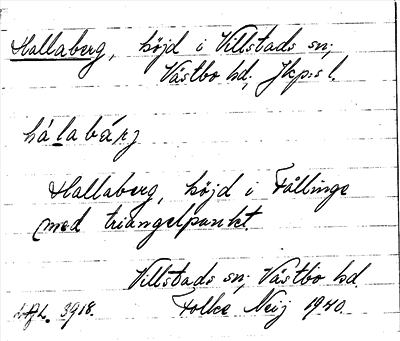 Hallaberg, höjd i Villstads sn;
Västbo hd; Jkp:s l.
hálabárj
Hallaberg, höjd i Fållinge
med triangelpunkt.
Villstads sn; Västbo hd.
3918. Folke Neij 1940.